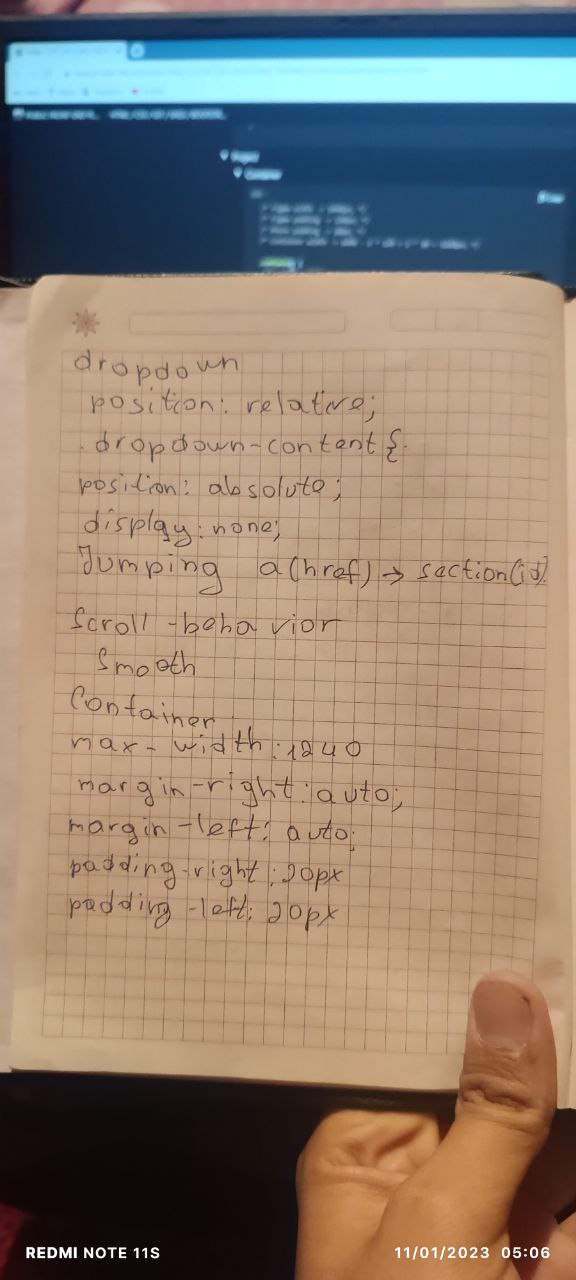 dropdown
position: relative;
.dropdown-content {
position: absolute;
display: none;
Jumping a(href) → section(id)
Scroll-behavior
Smooth
Container
max-width: 1240
margin-right: auto;
margin-left: auto;
padding-right: 20px
padding-left: 20px
REDMI NOTE 11S
11/01/2023 05:06